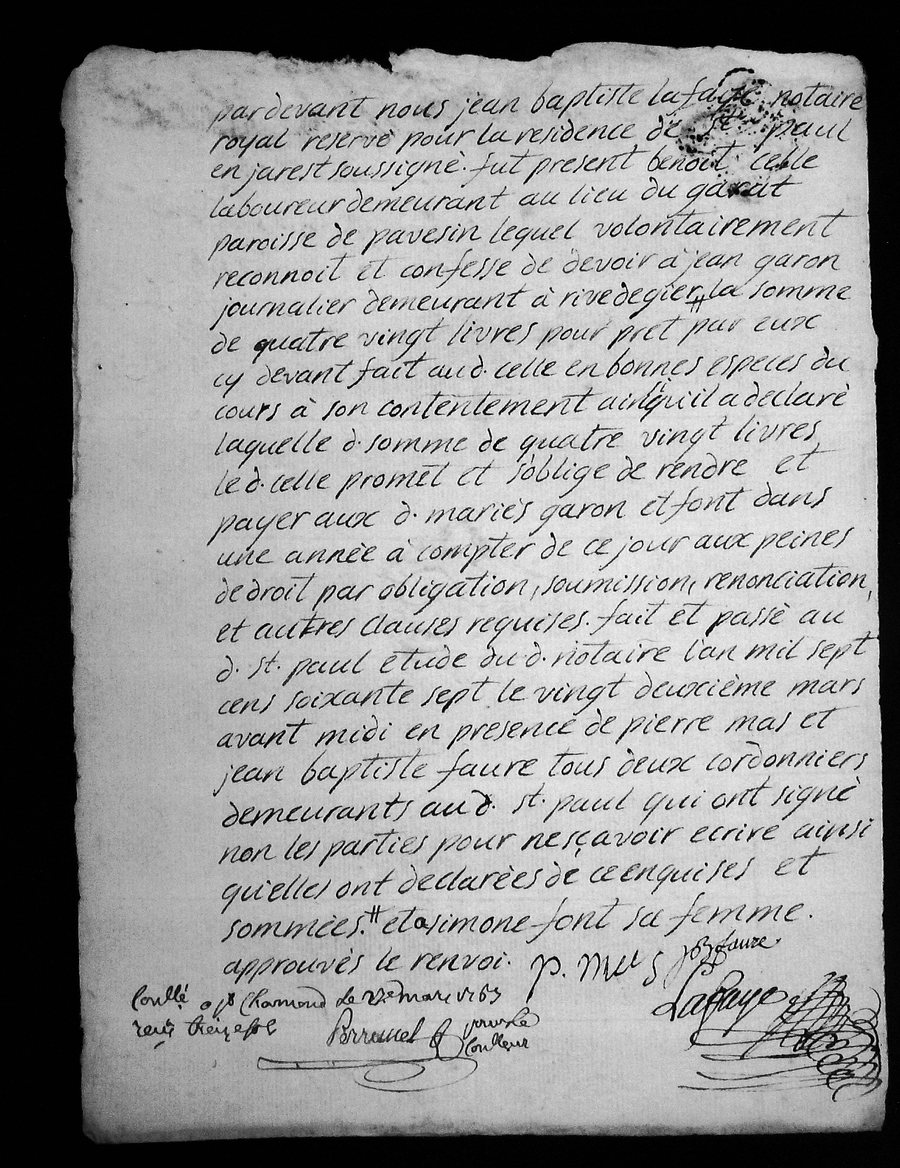 pardevant nous jean baptiste lafaye notaire
royal reservé pour la residence de St paul
en jarest soussigné. fut present benoit celle
laboureur demeurant au lieu du garat
paroisse de pavesin lequel volontairement
reconnoit et confesse de devoir a jean garon
journalier demeurant à rivedegier # la somme
de quatre vingt livres pour pret par eux
cy devant fait aud. celle en bonnes especes du
cours à son contentement ainsi qu'il a declaré
laquelle d. somme de quatre vingt livres
led. celle promet et s'oblige de rendre et
payer aux d. mariés garon et font dans
une année à compter de ce jour aux peines
de droit par obligation, soumission, renonciation,
et autres clauses requises. fait et passé au
d. st. paul etude du d. notaire l'an mil sept
cens soixante sept le vingt deuxiéme mars
avant midi en presence de pierre mas et
jean baptiste faure tous deux cordonniers
demeurants aud. st. paul qui ont signé
non les parties pour ne sçavoir ecrire ainsi
qu'elles ont declarées de ce enquises et
sommées. # et a simone font sa femme.
approuvés le renvoi. p. Mas JB faure.
Conllé a St Chamond le mars Lafaye
reçu treize sols
pour le
Conlleur